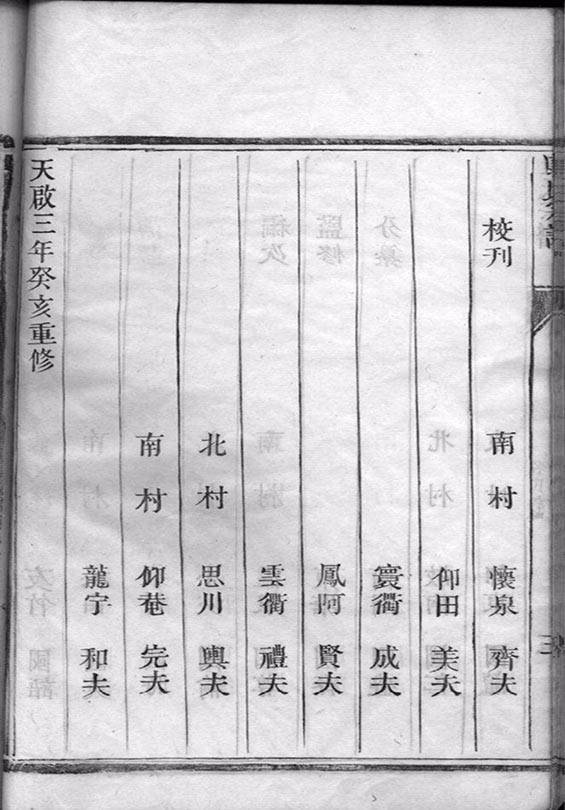 校刊 南村 懷泉 齊夫
仰田 美夫
寰衢 成夫
鳳阿 賢夫
雲衢 禮夫
北村 思川 輿夫
南村 仰菴 完夫
龍宇 和夫
天啟三年癸亥重修
三